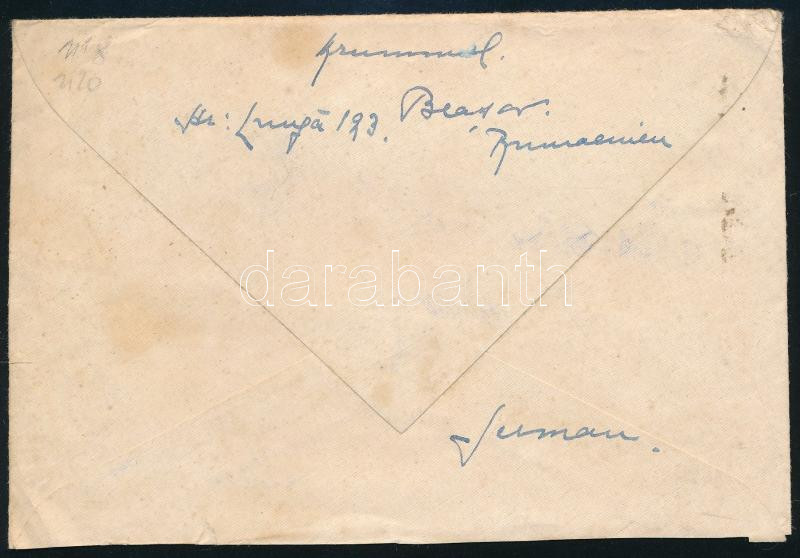 Krummel.
Str: Lungă 193, Brasov.
Rumaenien
darabanth
German.